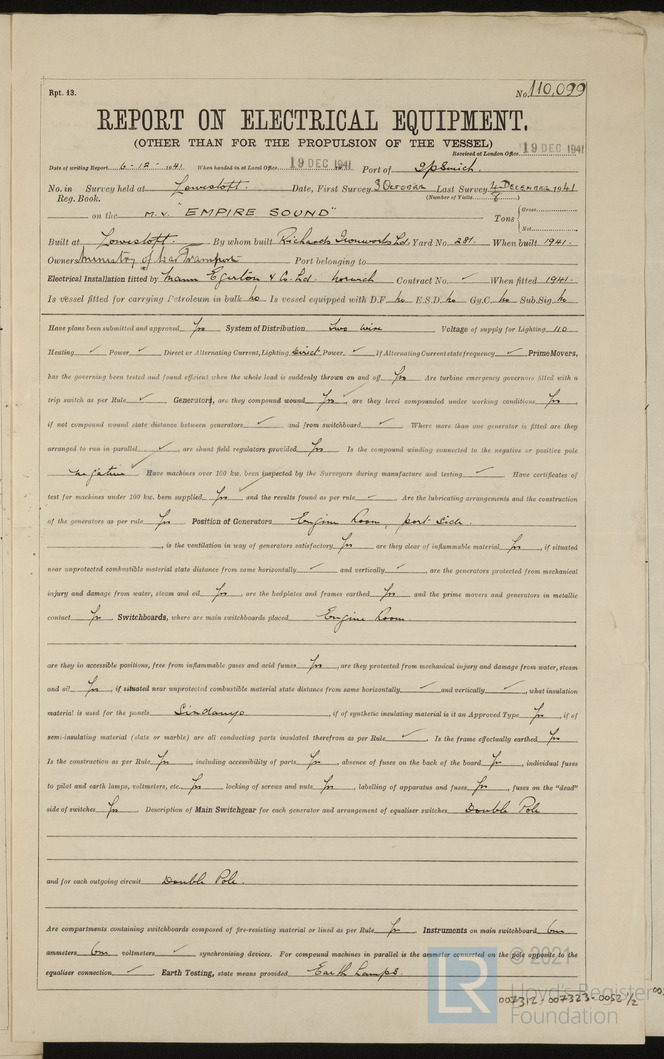 Rpt. 13.
No. 110,099
REPORT ON ELECTRICAL EQUIPMENT.
(OTHER THAN FOR THE PROPULSION OF THE VESSEL)
Received at London Office 19 DEC 1941
Date of writing Report 6-12-1941 When handed in at Local Office 19 DEC 1941 Port of Ipswich.
No. in Survey held at Lowestoft. Date, First Survey 3 October Last Survey 4 December 1941
Reg. Book. (Number of Visits 8)
on the M.V. "EMPIRE SOUND" Tons { Gross
Net
Built at Lowestoft. By whom built Richards Ironworks Ld. Yard No. 281. When built 1941.
Owners Ministry of War Transport Port belonging to
Electrical Installation fitted by Mann Egerton & Co. Ld. Norwich Contract No. ✓ When fitted 1941.
Is vessel fitted for carrying Petroleum in bulk No Is vessel equipped with D.F. No E.S.D. No Gy.C. No Sub.Sig. No
Have plans been submitted and approved Yes System of Distribution two wire Voltage of supply for Lighting 110
Heating ✓ Power ✓ Direct or Alternating Current, Lighting Direct Power ✓ If Alternating Current state frequency ✓ Prime Movers,
has the governing been tested and found efficient when the whole load is suddenly thrown on and off Yes Are turbine emergency governors fitted with a
trip switch as per Rule ✓ Generators, are they compound wound Yes, are they level compounded under working conditions Yes,
if not compound wound state distance between generators ✓ and from switchboard ✓ Where more than one generator is fitted are they
arranged to run in parallel ✓, are shunt field regulators provided Yes Is the compound winding connected to the negative or positive pole
negative Have machines over 100 kw. been inspected by the Surveyors during manufacture and testing ✓ Have certificates of
test for machines under 100 kw. been supplied Yes and the results found as per rule ✓ Are the lubricating arrangements and the construction
of the generators as per rule Yes Position of Generators Engine Room, port side.
, is the ventilation in way of generators satisfactory Yes are they clear of inflammable material Yes, if situated
near unprotected combustible material state distance from same horizontally ✓ and vertically ✓, are the generators protected from mechanical
injury and damage from water, steam and oil Yes, are the bedplates and frames earthed Yes and the prime movers and generators in metallic
contact Yes Switchboards, where are main switchboards placed Engine Room.
are they in accessible positions, free from inflammable gases and acid fumes Yes, are they protected from mechanical injury and damage from water, steam
and oil Yes, if situated near unprotected combustible material state distance from same horizontally ✓ and vertically ✓, what insulation
material is used for the panels Sindanyo, if of synthetic insulating material is it an Approved Type Yes, if of
semi-insulating material (slate or marble) are all conducting parts insulated therefrom as per Rule ✓ Is the frame effectually earthed Yes
Is the construction as per Rule Yes, including accessibility of parts Yes, absence of fuses on the back of the board Yes, individual fuses
to pilot and earth lamps, voltmeters, etc. Yes locking of screws and nuts Yes, labelling of apparatus and fuses Yes, fuses on the "dead"
side of switches Yes Description of Main Switchgear for each generator and arrangement of equaliser switches Double Pole
and for each outgoing circuit Double Pole.
Are compartments containing switchboards composed of fire-resisting material or lined as per Rule Yes Instruments on main switchboard One
ammeters One voltmeters ✓ synchronising devices. For compound machines in parallel is the ammeter connected on the pole opposite to the
equaliser connection ✓ Earth Testing, state means provided Earth Lamps
© 2021
LR
Lloyd's Register
Foundation
007312-007323-0052 1/2